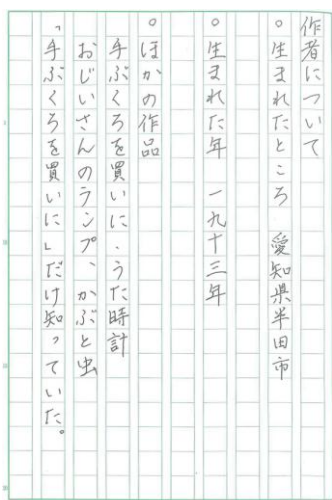 作者について
○生まれたところ 愛知県半田市
○生まれた年 一九十三年
○ほかの作品
手ぶくろを買いに・うた時計
おじいさんのランプ、かぶと虫
「手ぶくろを買いに」だけ知っていた。